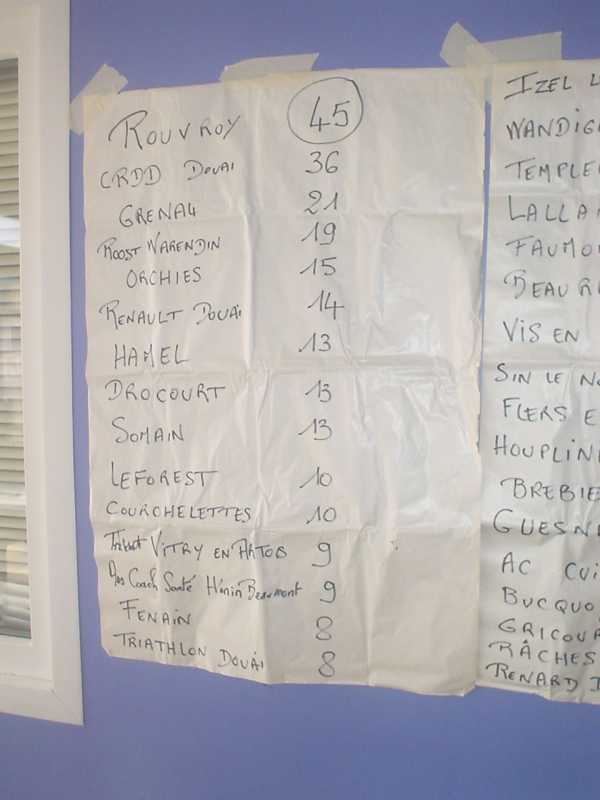 ROUVROY 45
CRDD DOUAI 36
GRENA4 21
ROOST WARENDIN 19
ORCHIES 15
RENAULT DOUAI 14
HAMEL 13
DROCOURT 13
SOMAIN 13
LEFOREST 10
COURCHELETTES 10
VITRY EN ARTOIS 9
Coach Santé Hénin Beaumont 9
FENAIN 8
TRIATHLON DOUAI 8
IZEL L
WANDIG
TEMPLE
LALLA
FAUMO
BEAUR
VIS EN
SIN LE NO
FLERS E
HOUPLIN
BREBIE
GUESN
AC CUI
BUCQUO
GRICOUR
RÂCHES
RENARD